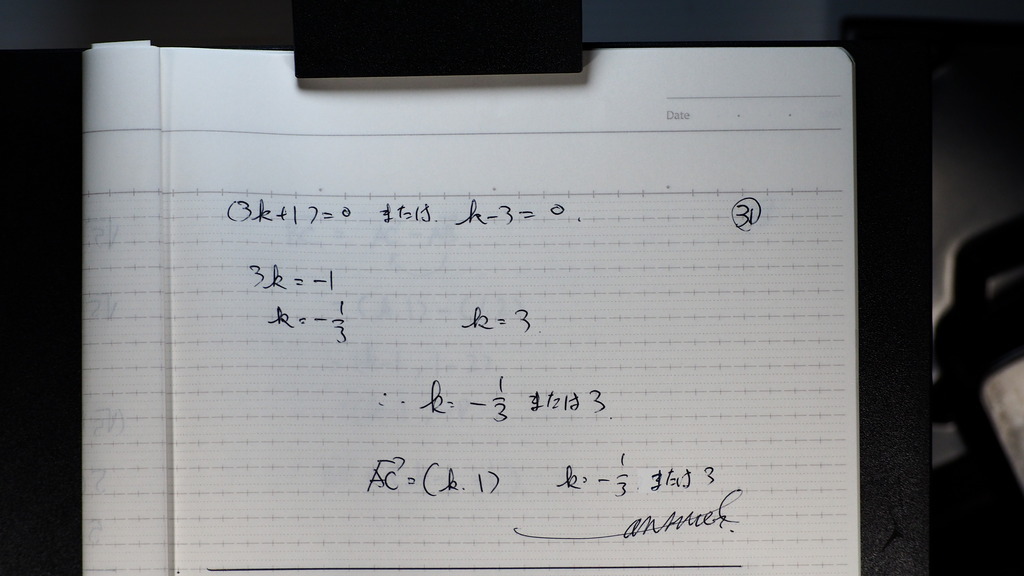 Date
(3k+1)=0 または. k-3=0. ㉛
3k=-1
k=-1/3 k=3.
∴ k=-1/3 または 3.
AC→=(k.1) k=-1/3. または 3
answer.